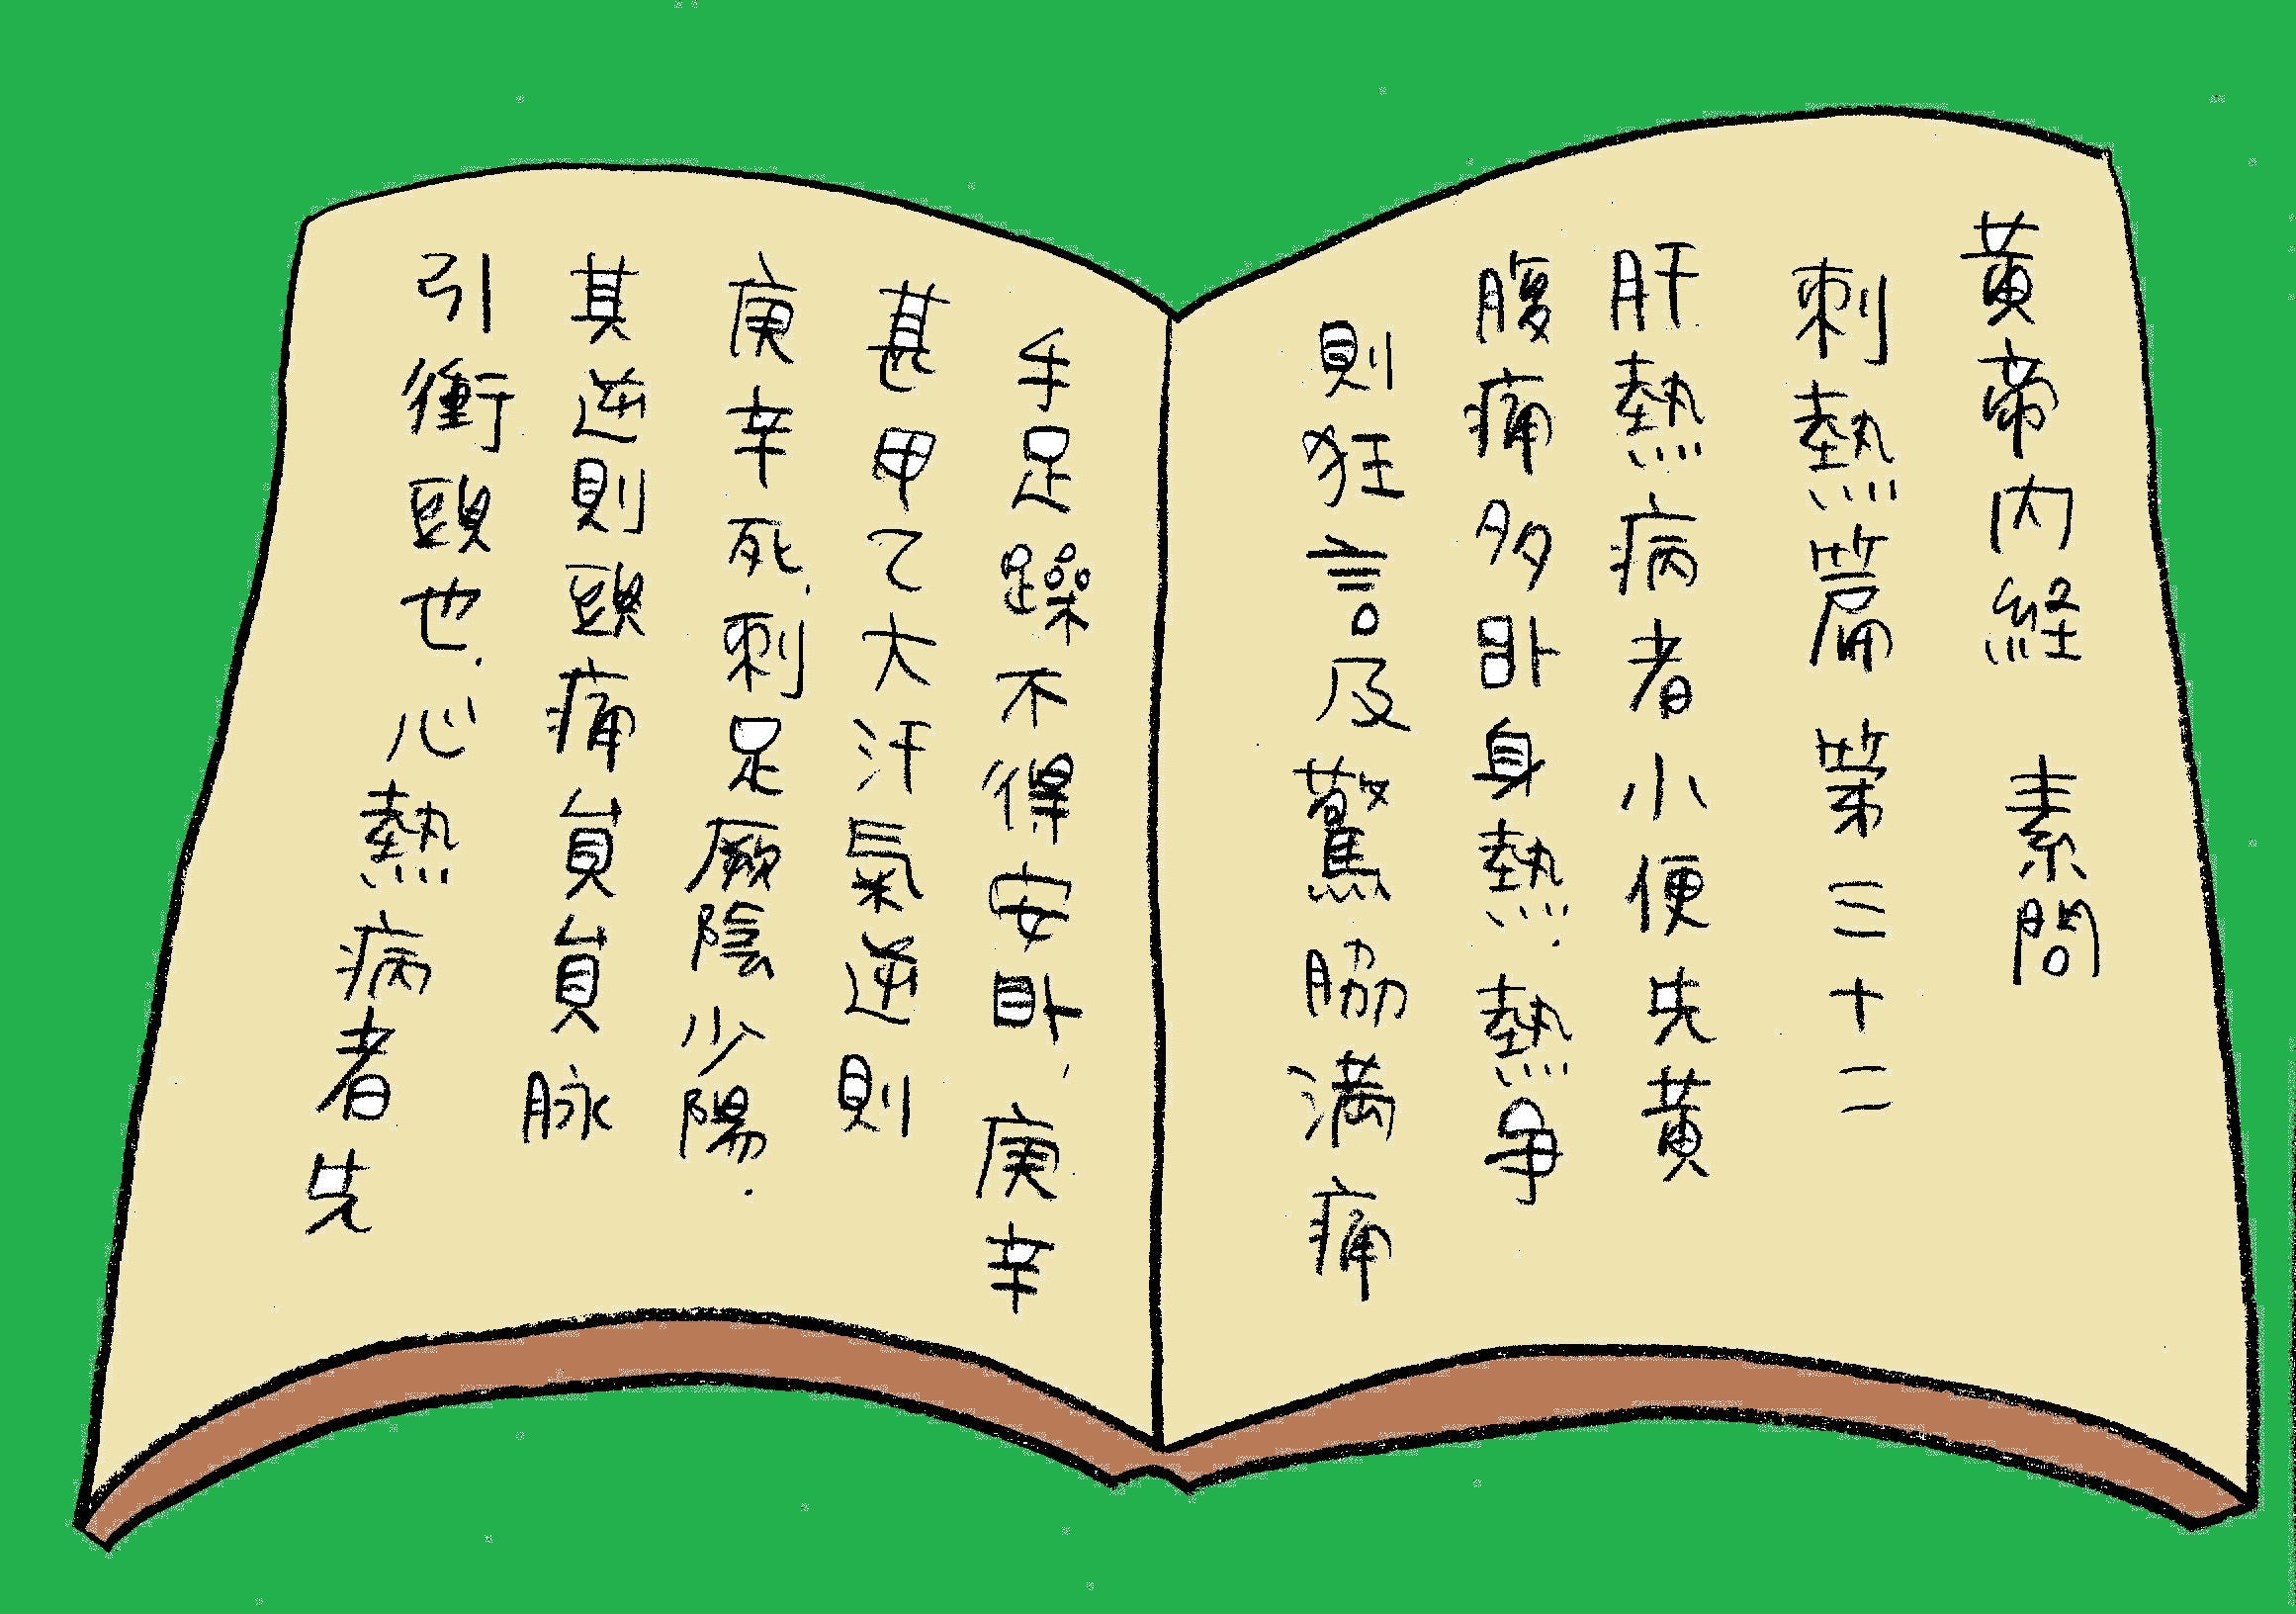 黄帝内経　素問
刺熱篇 第三十二
肝熱病者小便先黄
腹痛多卧身熱.熱争
則狂言及驚脇満痛
手足躁不得安卧、庚辛
甚甲乙大汗氣逆則
庚辛死.刺足厥陰少陽.
其逆則頭痛員員脉
引衝頭也.心熱病者先